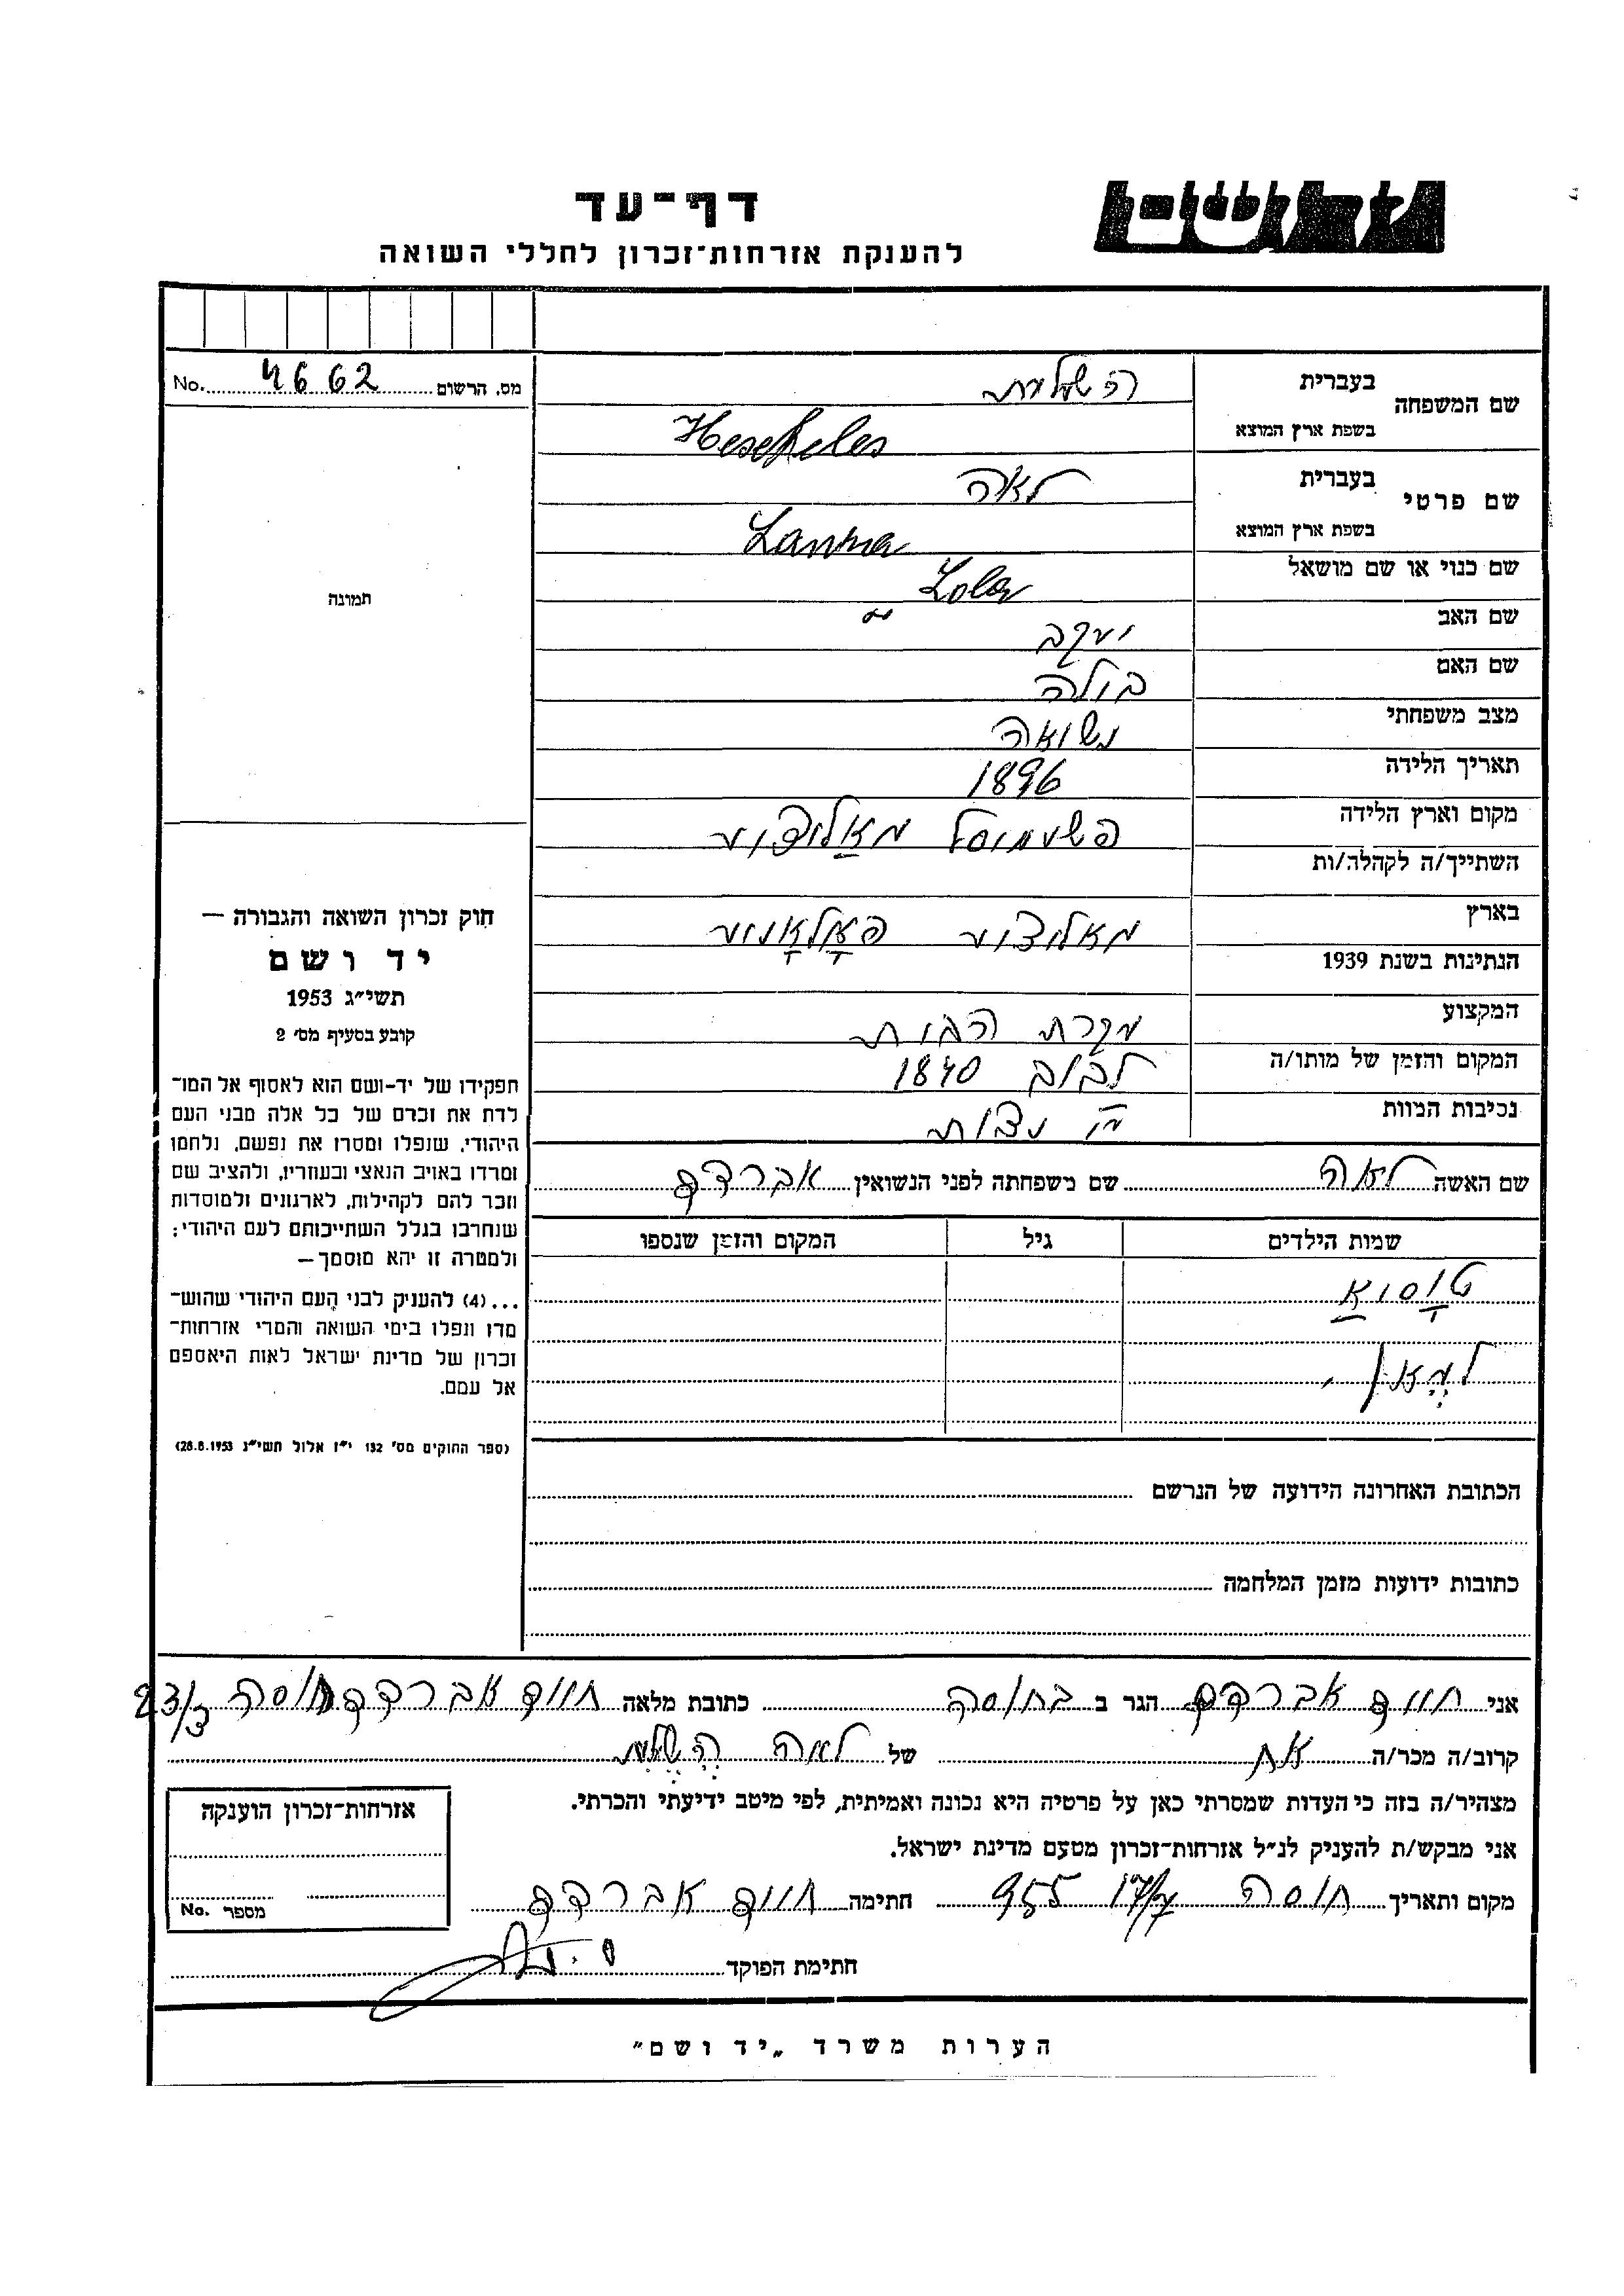 דף-עד
להענקת אזרחות-זכרון לחללי השואה
מס. הרשום 4662 No.
שם המשפחה
בעברית
בשפת ארץ המוצא Hescheles
שם פרטי
בעברית לאה
בשפת ארץ המוצא Lanna
שם כנוי או שם מושאל Lola
שם האב יעקב
שם האם בולה
מצב משפחתי נשואה
תאריך הלידה 1896
מקום וארץ הלידה
השתייך/ה לקהלה/ות
בארץ
הנתינות בשנת 1939
המקצוע עקרת הבית
המקום והזמן של מותו/ה לבוב 1840
נסיבות המוות
שם האשה לאה שם משפחתה לפני הנשואין
שמות הילדים גיל המקום והזמן שנספו
טוסיא
הכתובת האחרונה הידועה של הנרשם
כתובות ידועות מזמן המלחמה
תמונה
חוק זכרון השואה והגבורה —
יד ושם
תשי״ג 1953
קובע בסעיף מס׳ 2
תפקידו של יד-ושם הוא לאסוף אל המו-
לדת את זכרם של כל אלה מבני העם
היהודי, שנפלו ומסרו את נפשם, נלחמו
ומרדו באויב הנאצי ובעוזריו, ולהציב שם
וזכר להם לקהילות, לארגונים ולמוסדות
שנחרבו בגלל השתייכותם לעם היהודי;
ולמטרה זו יהא מוסמך —
...(4) להעניק לבני העם היהודי שהוש-
מדו ונפלו בימי השואה והמרי אזרחות-
זכרון של מדינת ישראל לאות היאספם
אל עמם.
(ספר החוקים מס׳ 132 י״ז אלול תשי״ג 28.8.1953)
אני חיים הגר ב בחיפה כתובת מלאה חיים חיפה
קרוב/ה מכר/ה אח של לאה
מצהיר/ה בזה כי העדות שמסרתי כאן על פרטיה היא נכונה ואמיתית, לפי מיטב ידיעתי והכרתי.
אני מבקש/ת להעניק לנ״ל אזרחות-זכרון מטעם מדינת ישראל.
מקום ותאריך חיפה 955 חתימה חיים
חתימת הפוקד
אזרחות-זכרון הוענקה
מספר No.
הערות משרד „יד ושם״